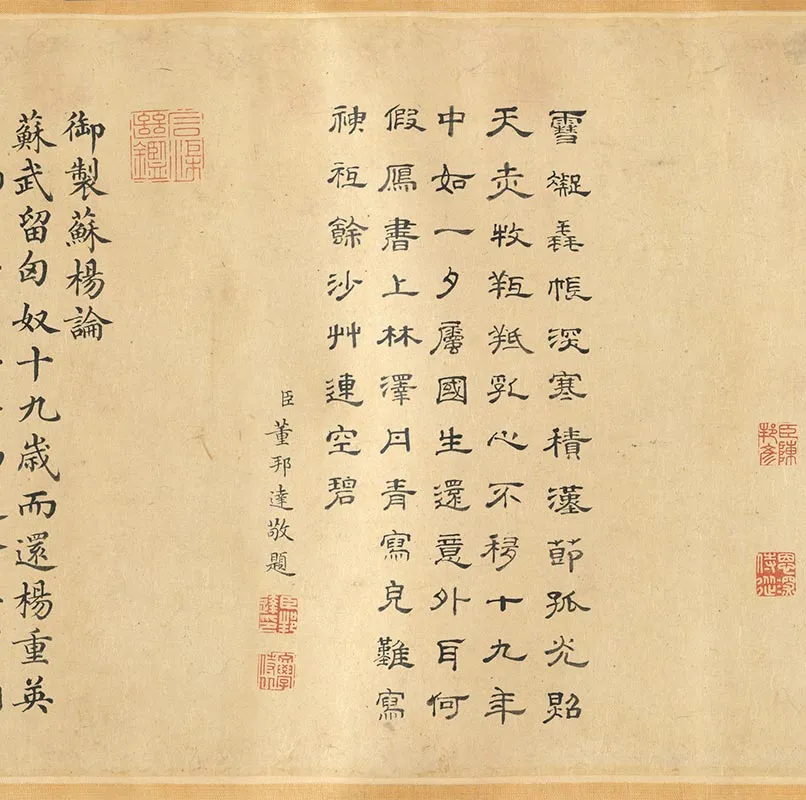 臣陳邦彥
雪凝毳帳深寒積漢節孤光照
天赤牧羝羝乳心不移十九年
中如一夕屬國生還意外耳何
假鴈書上林澤丹青寫皃難寫
神祗餘沙艸連空碧
臣董邦達敬題
御製蘇楊論
蘇武留匈奴十九嵗而還楊重英